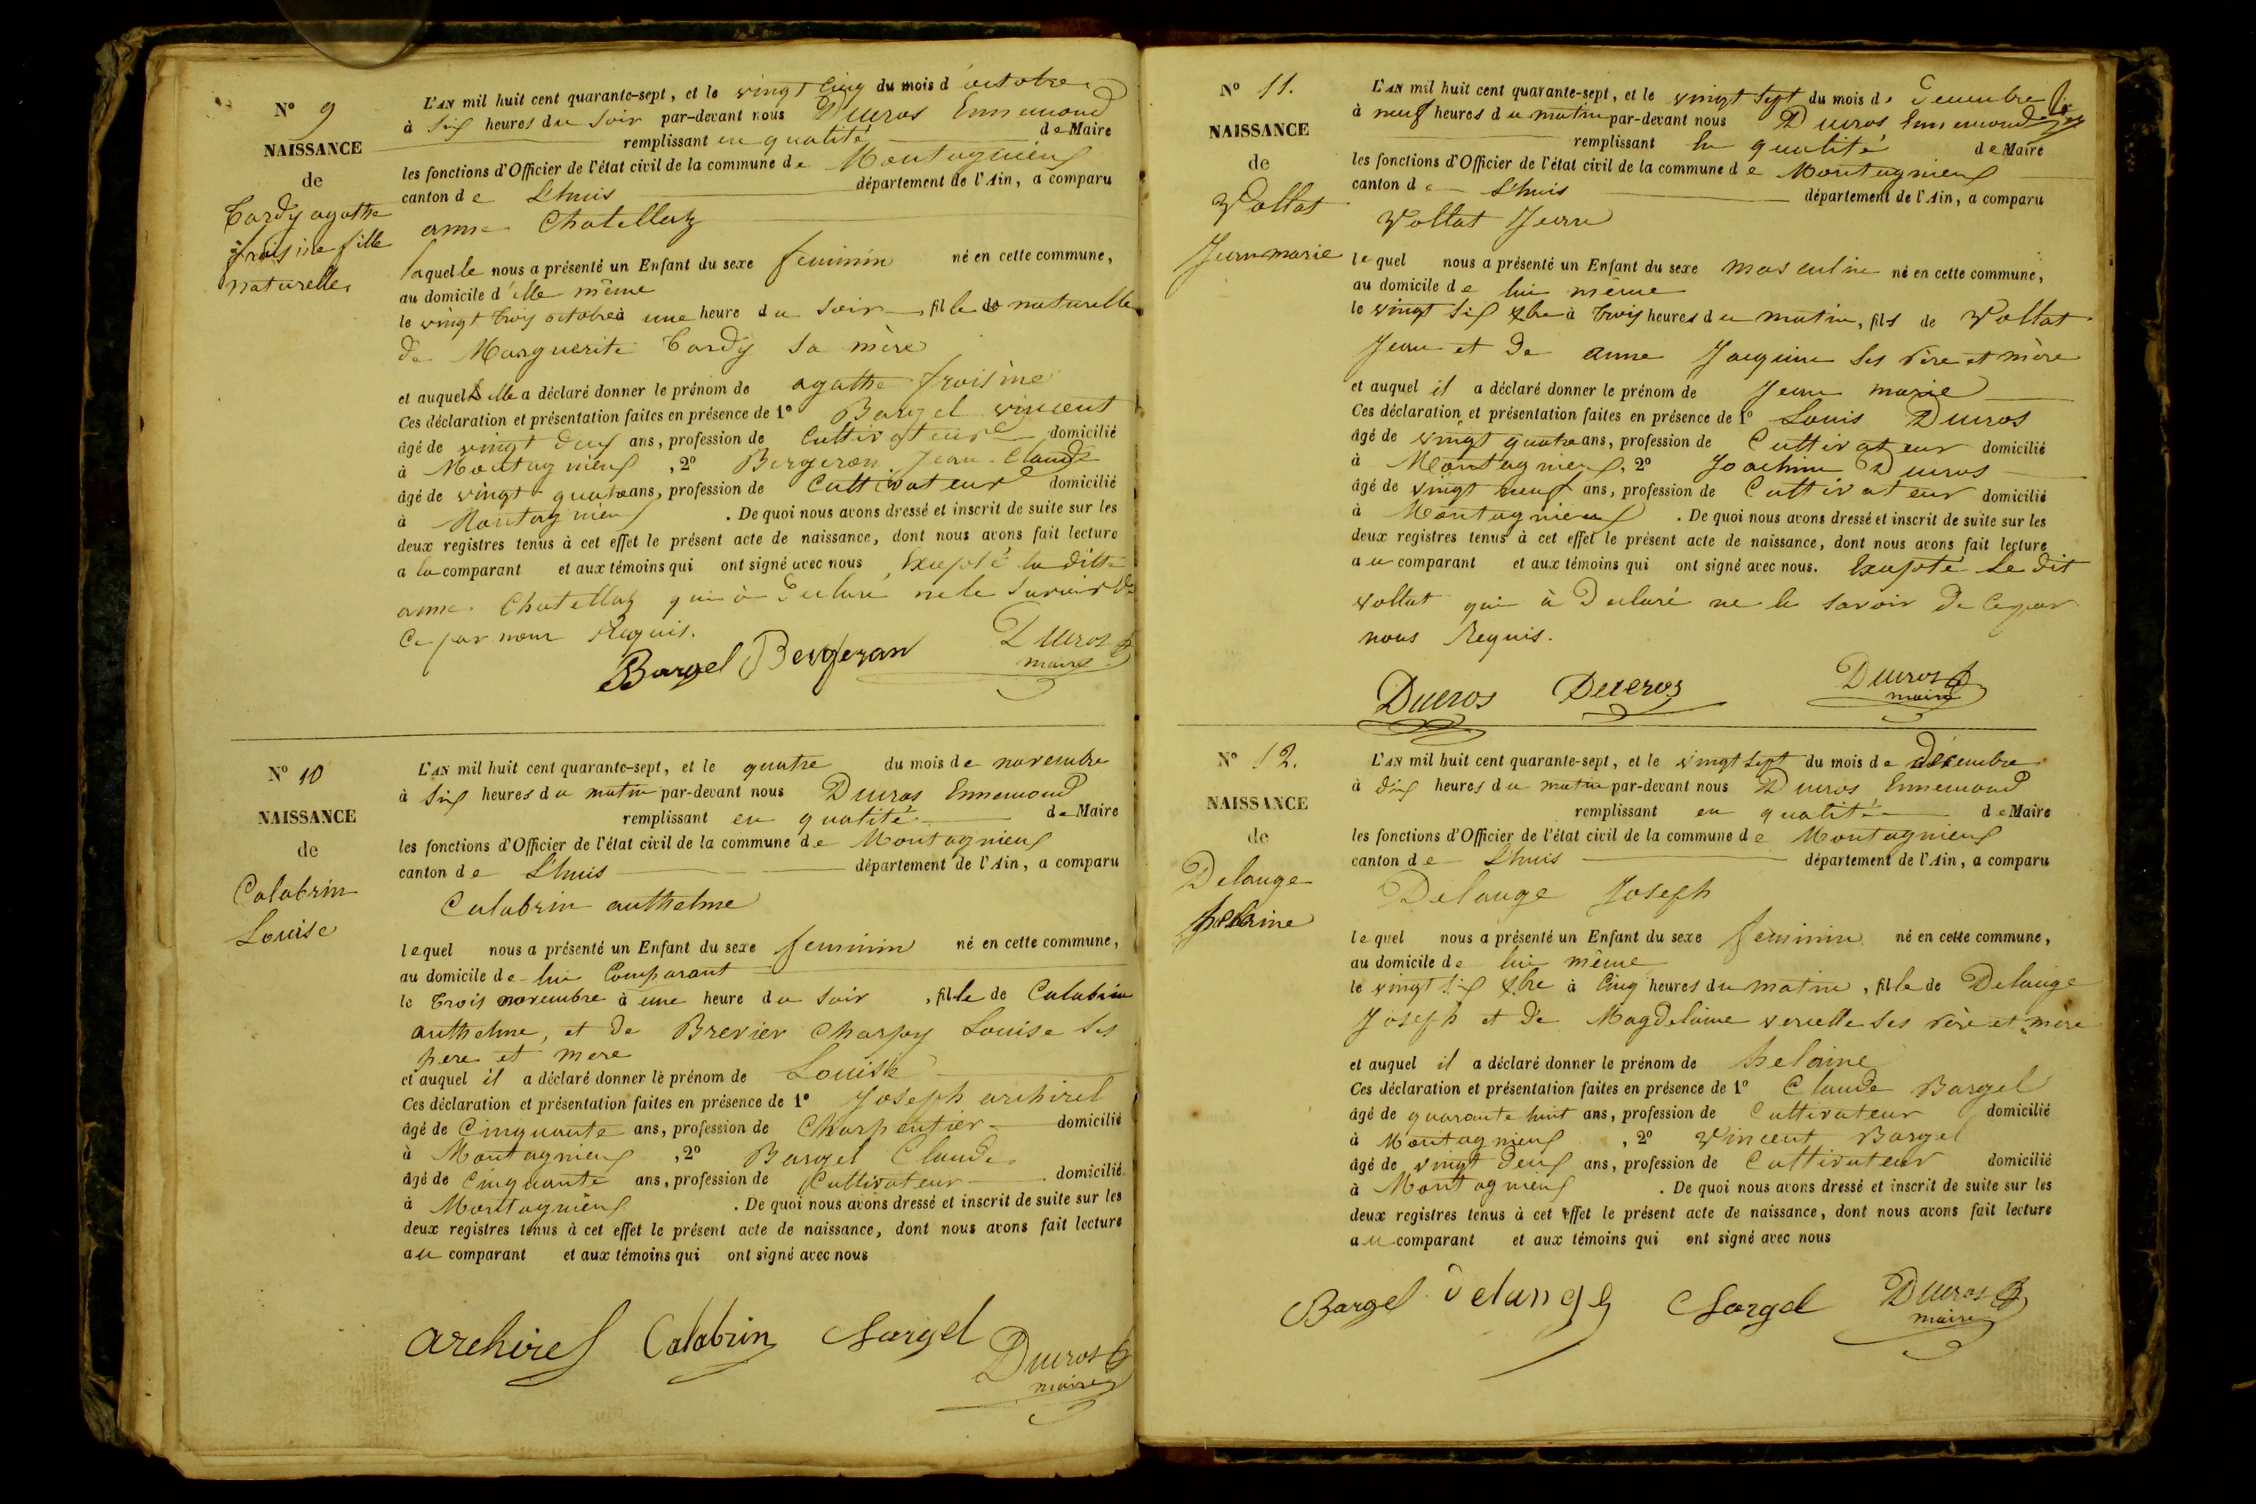 N° 9
NAISSANCE
de
Tardy agathe
froisine fille
naturelle
L'AN mil huit cent quarante-sept, et le vingt cinq du mois d'octobre
à six heures du soir par-devant nous Ducros Ennemond
remplissant en qualité de Maire
les fonctions d'Officier de l'état civil de la commune de Montagnieux
canton de Lhuis département de l'Ain, a comparu
anne Chatellaz
laquelle nous a présenté un Enfant du sexe feminin né en cette commune,
au domicile d'elle même
le vingt trois octobre à une heure du soir fille de naturelle
de Marguerite Tardy sa mère
et auquel elle a déclaré donner le prénom de agathe froisine
Ces déclaration et présentation faites en présence de 1° Bargel vincent
âgé de vingt deux ans, profession de Cultivateur domicilié
à Montagnieux, 2° Bergeron Jean Claude
âgé de vingt quatre ans, profession de Cultivateur domicilié
à Montagnieux. De quoi nous avons dressé et inscrit de suite sur les
deux registres tenus à cet effet le présent acte de naissance, dont nous avons fait lecture
a la comparant et aux témoins qui ont signé avec nous, Exepté la ditte
anne Chatellaz qui à Declaré ne le savoir de
Ce par nous Requis.
Bargel Bergeran Ducros
maire
N° 10
NAISSANCE
de
Calabrin
Louise
L'AN mil huit cent quarante-sept, et le quatre du mois de novembre
à six heures du matin par-devant nous Ducros Ennemond
remplissant en qualité de Maire
les fonctions d'Officier de l'état civil de la commune de Montagnieux
canton de Lhuis département de l'Ain, a comparu
Calabrin anthelme
lequel nous a présenté un Enfant du sexe feminin né en cette commune,
au domicile de lui Comparant
le trois novembre à une heure du soir, fille de Calabrin
anthelme, et de Brevier Charpy Louise ses
pere et mere
et auquel il a déclaré donner le prénom de Louise
Ces déclaration et présentation faites en présence de 1° Joseph archirel
âgé de Cinquante ans, profession de Charpentier domicilié
à Montagnieux, 2° Bargel Claude
âgé de Cinquante ans, profession de Cultivateur domicilié
à Montagnieux. De quoi nous avons dressé et inscrit de suite sur les
deux registres tenus à cet effet le présent acte de naissance, dont nous avons fait lecture
au comparant et aux témoins qui ont signé avec nous
archirel Calabrin Bargel Ducros
maire
N° 11.
NAISSANCE
de
Vollat
Jean marie
L'AN mil huit cent quarante-sept, et le vingt sept du mois de Decembre
à neuf heures du matin par-devant nous Ducros Ennemond
remplissant En qualité de Maire
les fonctions d'Officier de l'état civil de la commune de Montagnieux
canton de Lhuis département de l'Ain, a comparu
Vollat Jean
lequel nous a présenté un Enfant du sexe masculin né en cette commune,
au domicile de lui même
le vingt six Xbre à trois heures du matin, fils de Vollat
Jean et de anne Jacquin ses Père et mère
et auquel il a déclaré donner le prénom de Jean marie
Ces déclaration et présentation faites en présence de 1° Louis Ducros
âgé de vingt quatre ans, profession de Cultivateur domicilié
à Montagnieux, 2° Joachim Ducros
âgé de vingt neuf ans, profession de Cultivateur domicilié
à Montagnieux. De quoi nous avons dressé et inscrit de suite sur les
deux registres tenus à cet effet le présent acte de naissance, dont nous avons fait lecture
au comparant et aux témoins qui ont signé avec nous. Exepté Le dit
Vollat qui à Declaré ne le savoir De Ce par
nous Requis.
Ducros Ducros Ducros
maire
N° 12.
NAISSANCE
de
Delange
L'AN mil huit cent quarante-sept, et le vingt sept du mois de Décembre
à dix heures du matin par-devant nous Ducros Ennemond
remplissant en qualité de Maire
les fonctions d'Officier de l'état civil de la commune de Montagnieux
canton de Lhuis département de l'Ain, a comparu
Delange Joseph
lequel nous a présenté un Enfant du sexe feminin né en cette commune,
au domicile de lui même
le vingt six Xbre à Cinq heures du matin, fille de Delange
Joseph et de Magdelaine ses Père et mère
et auquel il a déclaré donner le prénom de helaine
Ces déclaration et présentation faites en présence de 1° Claude Bargel
âgé de quarante huit ans, profession de Cultivateur domicilié
à Montagnieux, 2° Vincent Bargel
âgé de vingt deux ans, profession de Cultivateur domicilié
à Montagnieux. De quoi nous avons dressé et inscrit de suite sur les
deux registres tenus à cet effet le présent acte de naissance, dont nous avons fait lecture
au comparant et aux témoins qui ont signé avec nous
Bargel Delange Bargel Ducros
maire